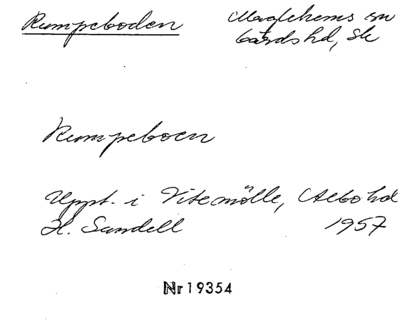 Rumpeboden
Maglehems sn
Gärds hd, Sk
Rumpeboen
Uppt. i Vitemölle, Albo hd
H. Sandell 1957
Nr 19354